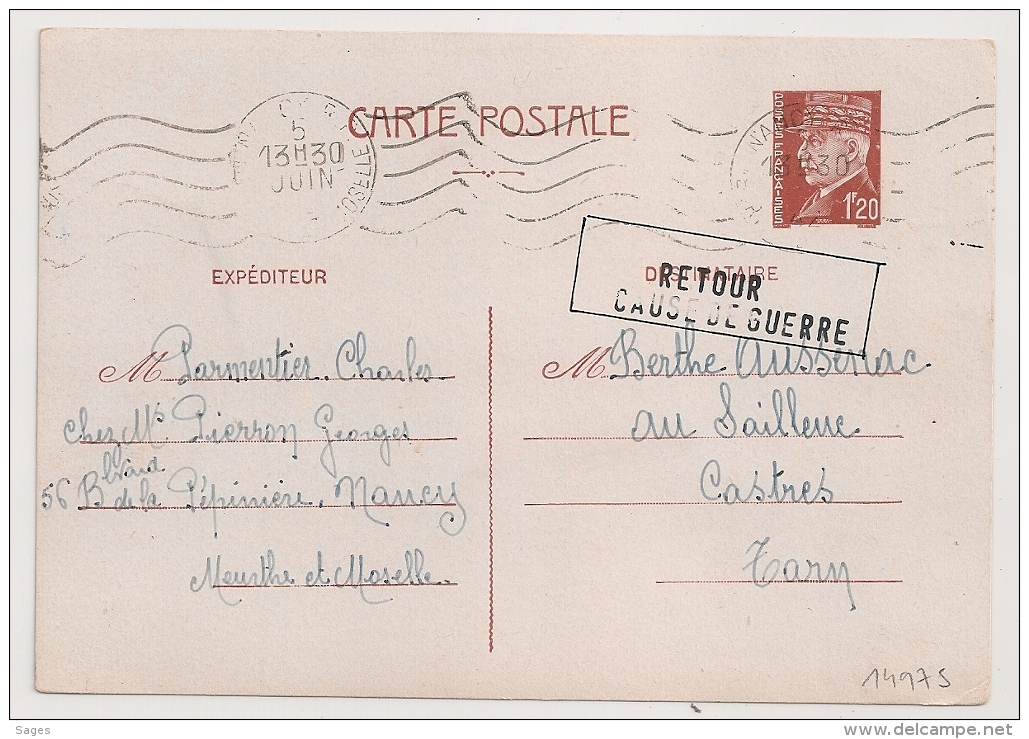 CARTE POSTALE
5
13H30
JUIN
13H30
POSTES FRANÇAISES
1F20
EXPÉDITEUR
DESTINATAIRE
RETOUR
CAUSE DE GUERRE
M Parmentier Charles
chez Mr Pierron Georges
56 Blvard de la Pépinière. Nancy
Meurthe et Moselle
M Berthe Aussenac
au
Castres
Tarn
14975
Sages
www.delcampe.net